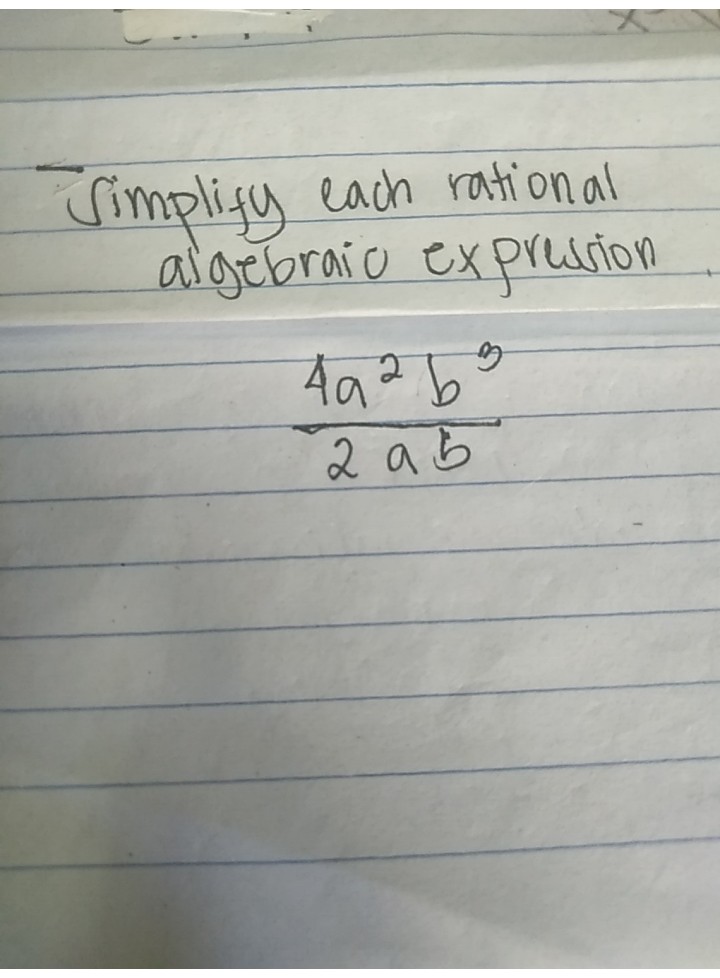 Simplify each rational
algebraic expression
4a² b³
2 a b